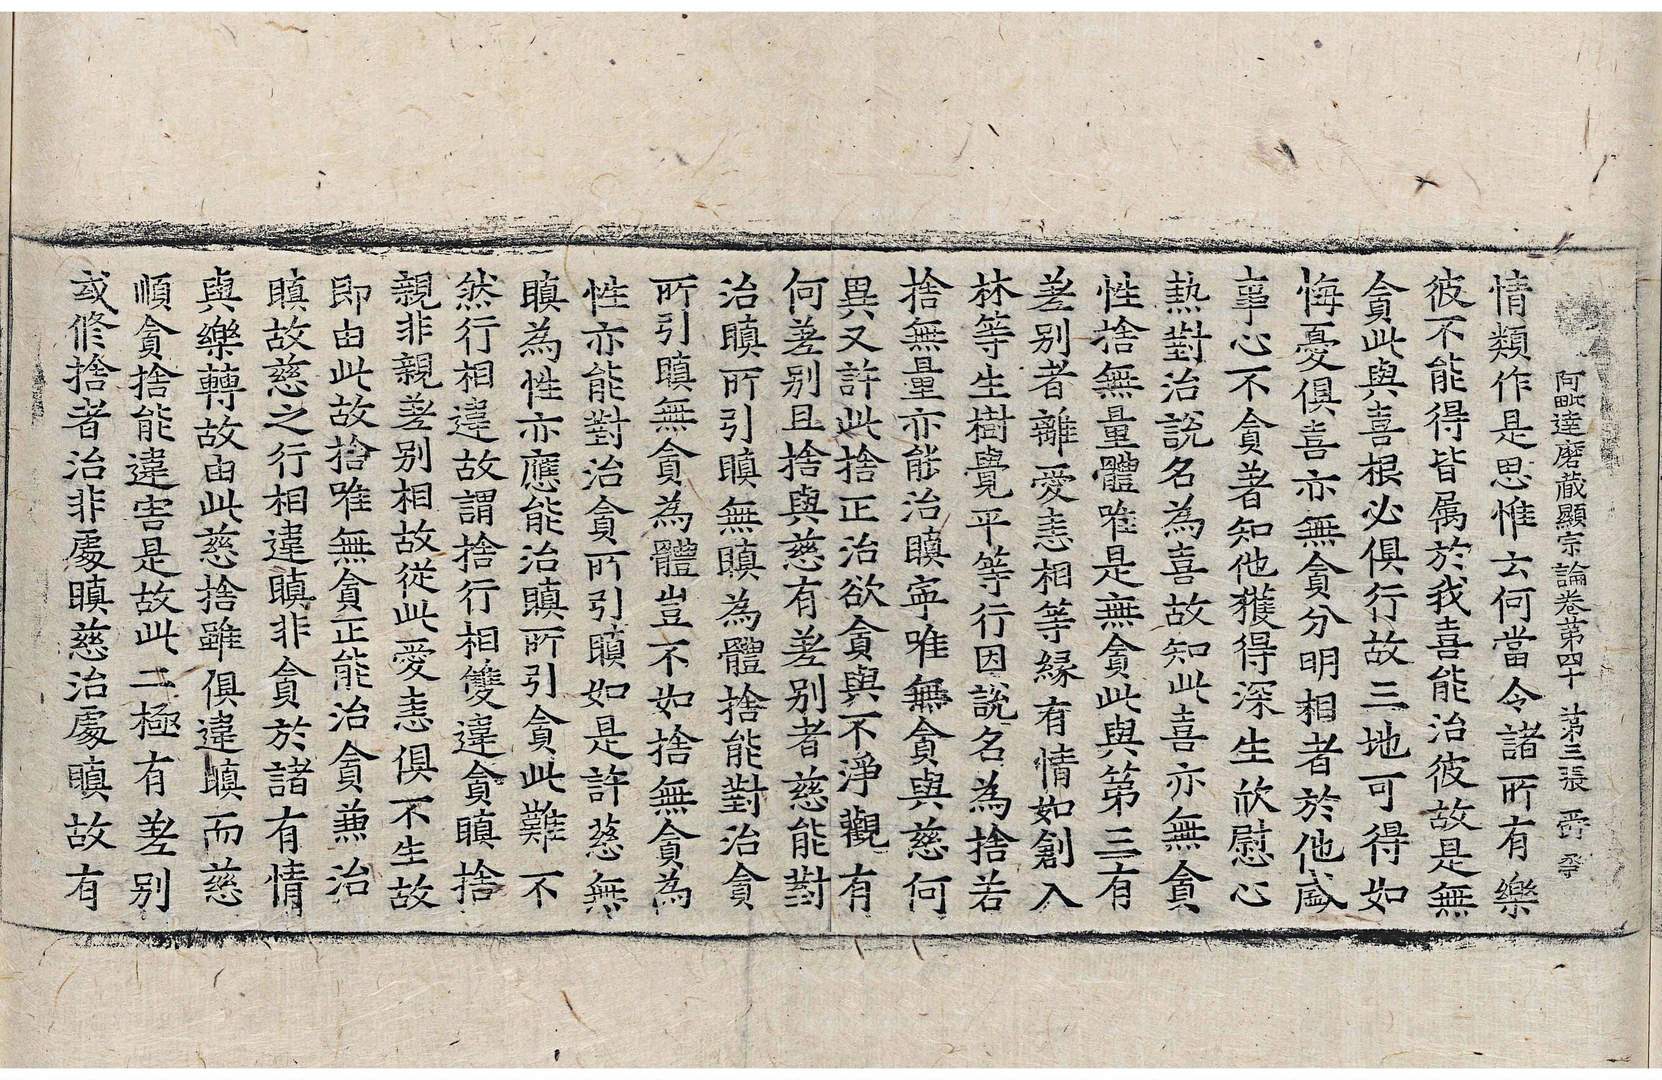 阿毗達磨蔵顯宗論卷第四十 第三張 爵
情類作是思惟云何當令諸所有樂
彼不能得皆属於我喜能治彼故是無
貪此與喜根必俱行故三地可得如
悔憂俱喜亦無貪分明相者於他盛
事心不貪著知他獲得深生欣慰心
熱對治説名為喜故知此喜亦無貪
性捨無量體唯是無貪此與第三有
差别者離愛恚相等緣有情如創入
林等生樹覺平等行因説名為捨若
捨無量亦能治瞋寧唯無貪與慈何
異又許此捨正治欲貪與不淨觀有
何差别且捨與慈有差别者慈能對
治瞋所引瞋無瞋為體捨能對治貪
所引瞋無貪為體豈不如捨無貪為
性亦能對治貪所引瞋如是許慈無
瞋為性亦應能治瞋所引貪此難不
然行相違故謂捨行相雙違貪瞋捨
親非親差别相故從此愛恚俱不生故
即由此故捨唯無貪正能治貪兼治
瞋故慈之行相違瞋非貪於諸有情
與樂轉故由此慈捨雖俱違瞋而慈
順貪捨能違害是故此二極有差别
或修捨者治非處瞋慈治處瞋故有